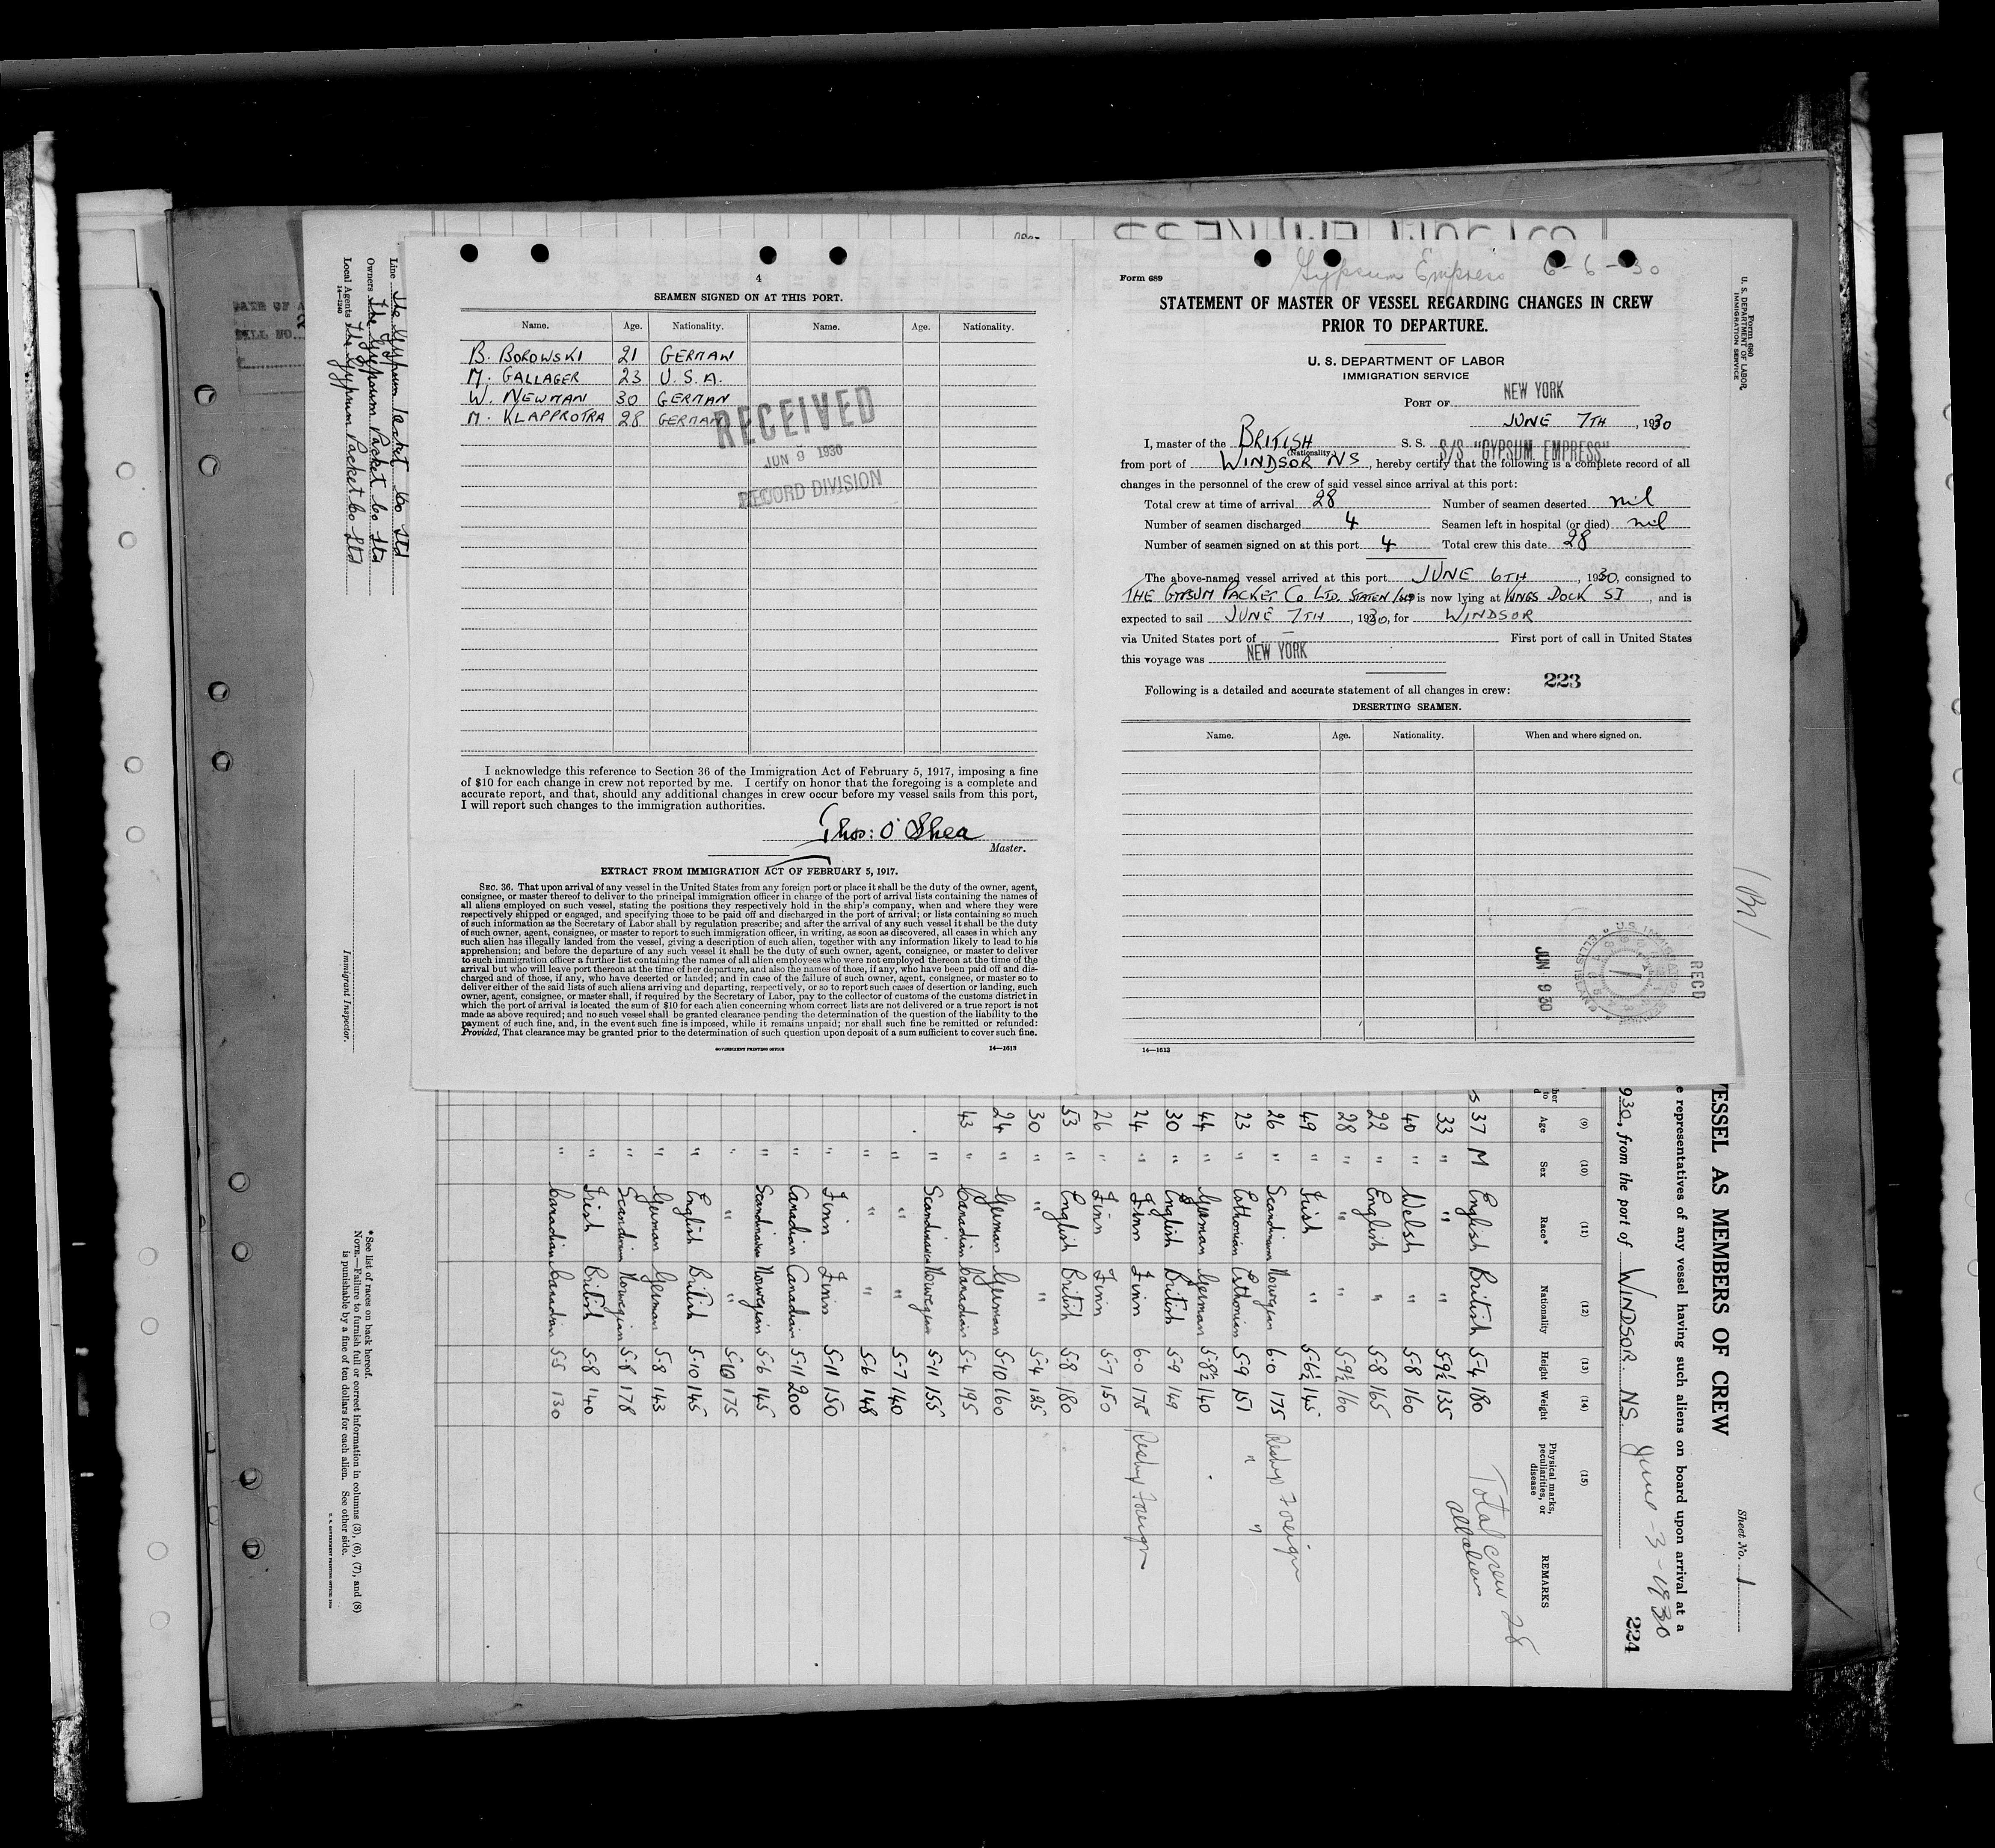 4
SEAMEN SIGNED ON AT THIS PORT.
Name. Age. Nationality. Name. Age. Nationality.
B. BOROWSKI 21 GERMAN
M. GALLAGER 23 U.S.A.
W. NEWMAN 30 GERMAN
M. KLAPPROTRA 28 GERMAN
RECEIVED
JUN 9 1930
RECORD DIVISION
I acknowledge this reference to Section 36 of the Immigration Act of February 5, 1917, imposing a fine
of $10 for each change in crew not reported by me. I certify on honor that the foregoing is a complete and
accurate report, and that, should any additional changes in crew occur before my vessel sails from this port,
I will report such changes to the immigration authorities.
Thos: O'Shea
Master.
EXTRACT FROM IMMIGRATION ACT OF FEBRUARY 5, 1917.
SEC. 36. That upon arrival of any vessel in the United States from any foreign port or place it shall be the duty of the owner, agent,
consignee, or master thereof to deliver to the principal immigration officer in charge of the port of arrival lists containing the names of
all aliens employed on such vessel, stating the positions they respectively hold in the ship's company, when and where they were
respectively shipped or engaged, and specifying those to be paid off and discharged in the port of arrival; or lists containing so much
of such information as the Secretary of Labor shall by regulation prescribe; and after the arrival of any such vessel it shall be the duty
of such owner, agent, consignee, or master to report to such immigration officer, in writing, as soon as discovered, all cases in which any
such alien has illegally landed from the vessel, giving a description of such alien, together with any information likely to lead to his
apprehension; and before the departure of any such vessel it shall be the duty of such owner, agent, consignee, or master to deliver
to such immigration officer a further list containing the names of all alien employees who were not employed thereon at the time of the
arrival but who will leave port thereon at the time of her departure, and also the names of those, if any, who have been paid off and dis-
charged and of those, if any, who have deserted or landed; and in case of the failure of such owner, agent, consignee, or master so to
deliver either of the said lists of such aliens arriving and departing, respectively, or so to report such cases of desertion or landing, such
owner, agent, consignee, or master shall, if required by the Secretary of Labor, pay to the collector of customs of the customs district in
which the port of arrival is located the sum of $10 for each alien concerning whom correct lists are not delivered or a true report is not
made as above required; and no such vessel shall be granted clearance pending the determination of the question of the liability to the
payment of such fine, and, in the event such fine is imposed, while it remains unpaid; nor shall such fine be remitted or refunded:
Provided, That clearance may be granted prior to the determination of such question upon deposit of a sum sufficient to cover such fine.
GOVERNMENT PRINTING OFFICE 14—1613
Gypsum Empress 6-6-30
Form 689
STATEMENT OF MASTER OF VESSEL REGARDING CHANGES IN CREW
PRIOR TO DEPARTURE.
U. S. DEPARTMENT OF LABOR
IMMIGRATION SERVICE
PORT OF NEW YORK
JUNE 7TH, 1930
I, master of the BRITISH S. S. S/S "GYPSUM EMPRESS"
(Nationality)
from port of WINDSOR NS, hereby certify that the following is a complete record of all
changes in the personnel of the crew of said vessel since arrival at this port:
Total crew at time of arrival 28 Number of seamen deserted nil
Number of seamen discharged 4 Seamen left in hospital (or died) nil
Number of seamen signed on at this port 4 Total crew this date 28
The above-named vessel arrived at this port JUNE 6TH, 1930, consigned to
THE GYPSUM PACKET CO LTD. STATEN ISLD is now lying at KINGS DOCK SI, and is
expected to sail JUNE 7TH, 1930, for WINDSOR
via United States port of — First port of call in United States
this voyage was NEW YORK
223
Following is a detailed and accurate statement of all changes in crew:
DESERTING SEAMEN.
Name. Age. Nationality. When and where signed on.
JUN 9 30
RECD
14—1613
Form 680
U. S. DEPARTMENT OF LABOR
IMMIGRATION SERVICE
Sheet No. 1
ESSEL AS MEMBERS OF CREW
e representatives of any vessel having such aliens on board upon arrival at a
930, from the port of WINDSOR NS. June - 3 - 1930
224
(9) (10) (11) (12) (13) (14) (15)
Age Sex Race* Nationality Height Weight Physical marks, peculiarities, or disease REMARKS
37 M English British 5-4 180
Total crew 28
all aliens
33 " " " 5-9½ 135
40 " Welsh " 5-8 160
22 " English " 5-8 165
28 " " " 5-9½ 160
49 " Irish " 5-6½ 145
26 " Scandinavian Norwegian 6-0 175 Reship Foreign
23 " Esthonian Esthonian 5-9 151 " "
44 " German German 5-8½ 140
30 " English British 5-9 149
24 " Finn Finn 6-0 175 Reship Foreign
26 " Finn Finn 5-7 150
53 " English British 5-8 180
30 " " " 5-4 195
24 " German German 5-10 160
43 " Canadian Canadian 5-4 195
" Scandinavian Norwegian 5-11 155
" " " 5-7 140
" " " 5-6 148
" Finn Finn 5-11 150
" Canadian Canadian 5-11 200
" Scandinavian Norwegian 5-6 145
" " " 5-10 175
" English British 5-10 145
" German German 5-8 143
" Scandinavian Norwegian 5-8 178
" Irish British 5-8 140
" Canadian Canadian 5-5 130
Line The Gypsum Packet Co Ltd
Owners The Gypsum Packet Co Ltd
Local Agents The Gypsum Packet Co Ltd
14—1240
Immigrant Inspector.
*See list of races on back hereof.
NOTE.—Failure to furnish full or correct information in columns (3), (6), (7), and (8)
is punishable by a fine of ten dollars for each alien. See other side.